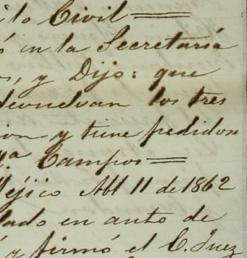 ito Civil
ó en la Secretaría
s, y Dijo: que
devuelvan los tres
ion y tiene pedidos
ya Campos
Méjico Abl 11 de 1862
lado en auto de
y firmó el C. Juez